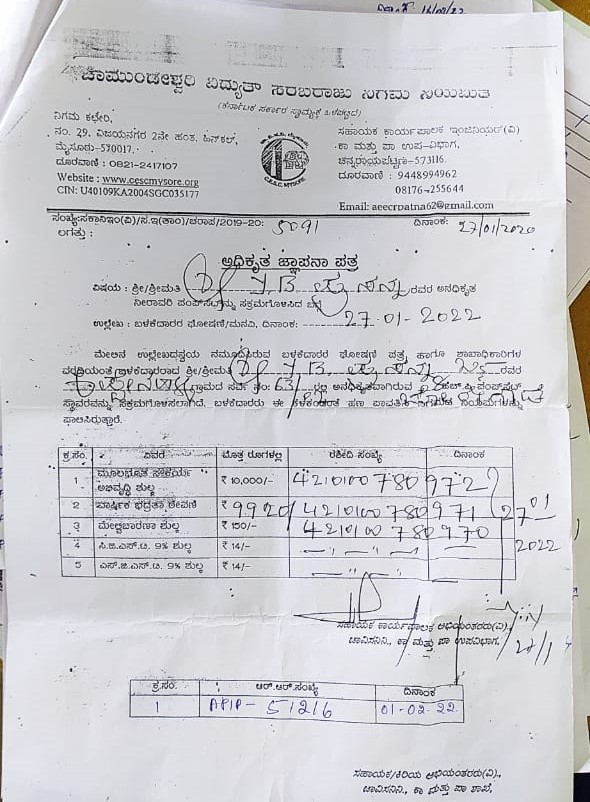 ದಿನಾಂಕ 16/02/22
ಚಾಮುಂಡೇಶ್ವರಿ ವಿದ್ಯುತ್ ಸರಬರಾಜು ನಿಗಮ ನಿಯಮಿತ
(ಕರ್ನಾಟಕ ಸರ್ಕಾರ ಸ್ವಾಮ್ಯಕ್ಕೆ ಒಳಪಟ್ಟಿದೆ)
ನಿಗಮ ಕಛೇರಿ,
ನಂ. 29, ವಿಜಯನಗರ 2ನೇ ಹಂತ, ಹಿನ್‌ಕಲ್,
ಮೈಸೂರು-570017.
ದೂರವಾಣಿ : 0821-2417107
Website : www.cescmysore.org
CIN: U40109KA2004SGC035177
C.E.S.C. MYSORE
ಸಹಾಯಕ ಕಾರ್ಯಪಾಲಕ ಇಂಜಿನಿಯರ್(ವಿ)
ಕಾ ಮತ್ತು ಪಾ ಉಪ-ವಿಭಾಗ,
ಚನ್ನರಾಯಪಟ್ಟಣ-573116.
ದೂರವಾಣಿ : 9448994962
08176-255644
Email: aeecrpatna62@gmail.com
ಸಂಖ್ಯೆ:ಸಕಾನಿಇಂ(ವಿ)/ಸ.ಇ(ತಾಂ)/ಚರಾಪ/2019-20: 5091 ದಿನಾಂಕ: 27/01/2020
ಲಗತ್ತು :
ಅಧಿಕೃತ ಜ್ಞಾಪನಾ ಪತ್ರ
ವಿಷಯ : ಶ್ರೀ/ಶ್ರೀಮತಿ ರವರ ಅನಧಿಕೃತ
ನೀರಾವರಿ ಪಂಪ್‌ಸೆಟ್ಟನ್ನು ಸಕ್ರಮಗೊಳಿಸಿದ ಬಗ್ಗೆ
ಉಲ್ಲೇಖ : ಬಳಕೆದಾರರ ಘೋಷಣೆ/ಮನವಿ, ದಿನಾಂಕ: 27-01-2022
ಮೇಲಿನ ಉಲ್ಲೇಖದನ್ವಯ ನಮೂದಿಸಿರುವ ಬಳಕೆದಾರರ ಘೋಷಣೆ ಪತ್ರ ಹಾಗೂ ಶಾಖಾಧಿಕಾರಿಗಳ
ವರದಿಯಂತೆ ಬಳಕೆದಾರರಾದ ಶ್ರೀ/ಶ್ರೀಮತಿ ರವರ
ಗ್ರಾಮದ ಸರ್ವೆ ನಂ: 63/ ರಲ್ಲಿ ಅನಧಿಕೃತವಾಗಿರುವ ಹೆಚ್.ಪಿ. ಪಂಪ್‌ಸೆಟ್
ಸ್ಥಾವರವನ್ನು ಸಕ್ರಮಗೊಳಿಸಲಾಗಿದೆ. ಬಳಕೆದಾರರು ಈ ಕೆಳಕಂಡಂತೆ ಹಣ ಪಾವತಿಸಿ ನಿಗಮದ ನಿಯಮಗಳನ್ನು
ಪಾಲಿಸಿರುತ್ತಾರೆ.
ಕ್ರ.ಸಂ. ವಿವರ ಮೊತ್ತ ರೂಗಳಲ್ಲಿ ರಶೀದಿ ಸಂಖ್ಯೆ ದಿನಾಂಕ
1 ಮೂಲಭೂತ ಸೌಕರ್ಯ ಅಭಿವೃದ್ಧಿ ಶುಲ್ಕ ₹ 10,000/- 4210100780972
2 ವಾರ್ಷಿಕ ಭದ್ರತಾ ಠೇವಣಿ ₹ 9920/ 4210100780971 27 01
3 ಮೇಲ್ವಿಚಾರಣಾ ಶುಲ್ಕ ₹ 150/- 4210100780970
4 ಸಿ.ಜಿ.ಎಸ್.ಟಿ. 9% ಶುಲ್ಕ ₹ 14/- — " — 2022
5 ಎಸ್.ಜಿ.ಎಸ್.ಟಿ. 9% ಶುಲ್ಕ ₹ 14/- — " —
ಸಹಾಯಕ ಕಾರ್ಯಪಾಲಕ ಅಭಿಯಂತರರು(ವಿ).,
ಚಾವಿಸನಿನಿ., ಕಾ ಮತ್ತು ಪಾ ಉಪವಿಭಾಗ, 27/1
ಕ್ರ.ಸಂ. ಆರ್.ಆರ್.ಸಂಖ್ಯೆ ದಿನಾಂಕ
1 APIP-51216 01-02-22
ಸಹಾಯಕ/ಕಿರಿಯ ಅಭಿಯಂತರರು(ವಿ).,
ಚಾವಿಸನಿನಿ., ಕಾ ಮತ್ತು ಪಾ ಶಾಖೆ,